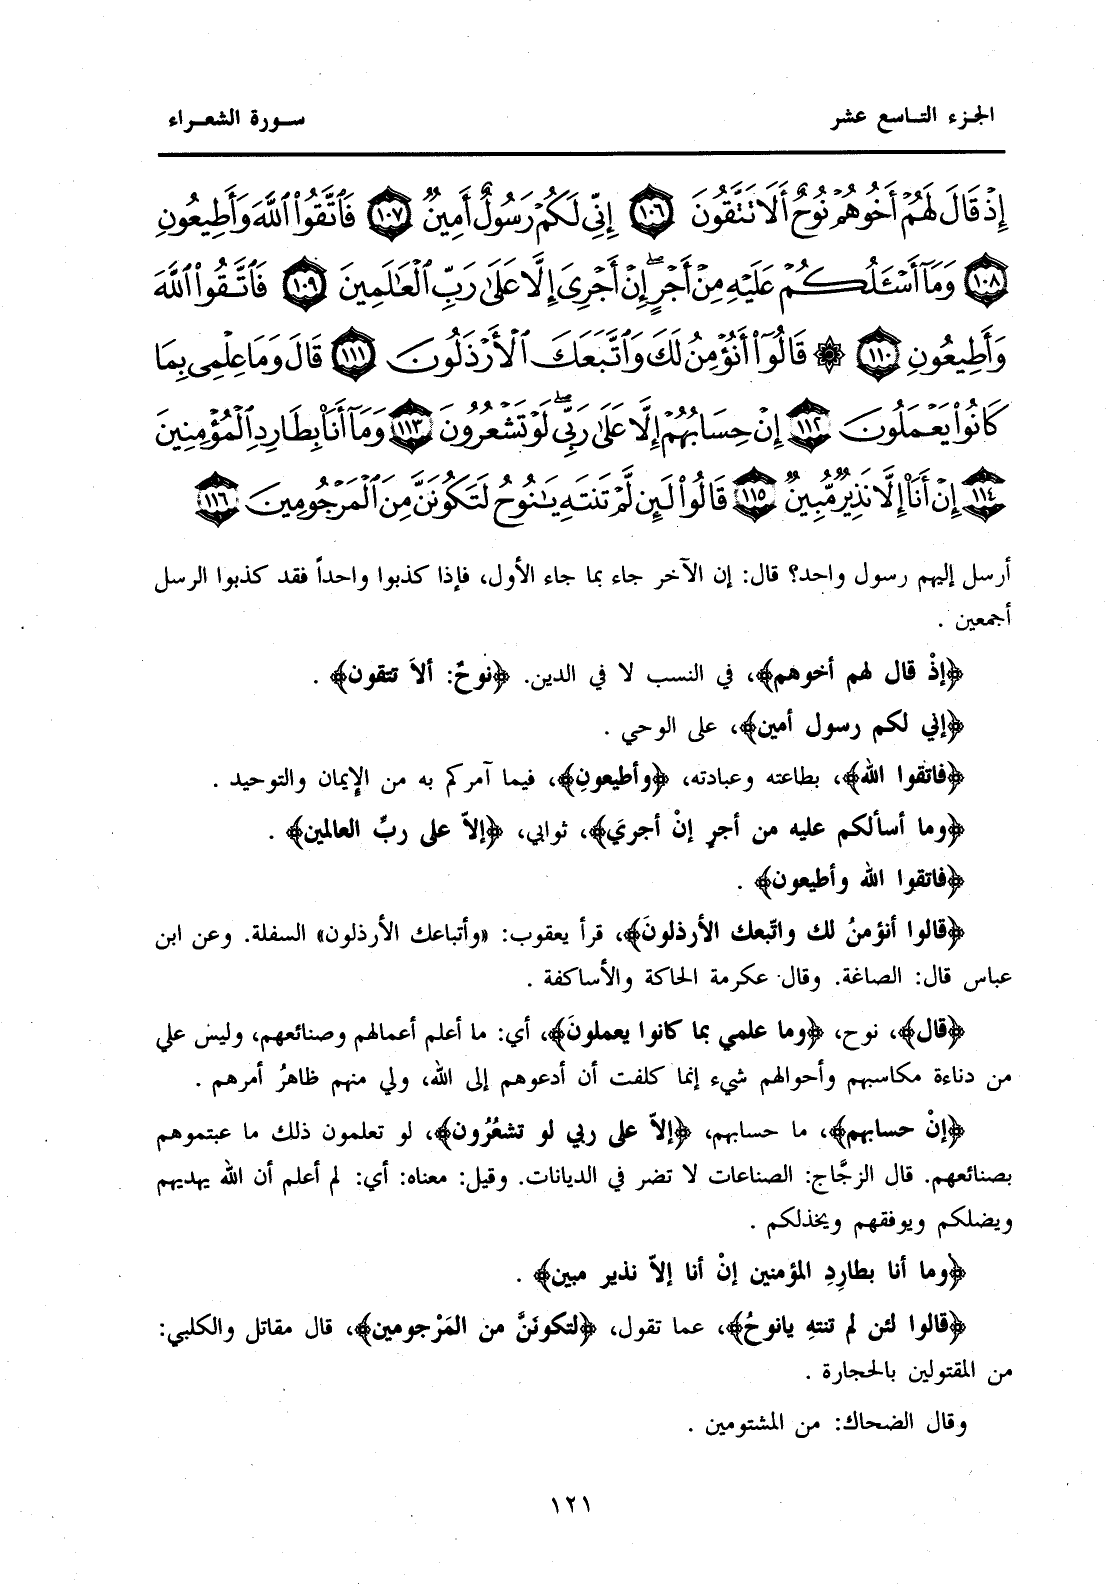 الجزء التاسع عشر
سورة الشعراء
إِذْ قَالَ لَهُمْ أَخُوهُمْ نُوحٌ أَلَا تَتَّقُونَ ١٠٦ إِنِّي لَكُمْ رَسُولٌ أَمِينٌ ١٠٧ فَاتَّقُوا اللَّهَ وَأَطِيعُونِ
١٠٨ وَمَا أَسْئَلُكُمْ عَلَيْهِ مِنْ أَجْرٍ إِنْ أَجْرِيَ إِلَّا عَلَىٰ رَبِّ الْعَالَمِينَ ١٠٩ فَاتَّقُوا اللَّهَ
وَأَطِيعُونِ ١١٠ ۞ قَالُوا أَنُؤْمِنُ لَكَ وَاتَّبَعَكَ الْأَرْذَلُونَ ١١١ قَالَ وَمَا عِلْمِي بِمَا
كَانُوا يَعْمَلُونَ ١١٢ إِنْ حِسَابُهُمْ إِلَّا عَلَىٰ رَبِّي لَوْ تَشْعُرُونَ ١١٣ وَمَا أَنَا بِطَارِدِ الْمُؤْمِنِينَ
١١٤ إِنْ أَنَا إِلَّا نَذِيرٌ مُّبِينٌ ١١٥ قَالُوا لَئِن لَّمْ تَنتَهِ يَٰنُوحُ لَتَكُونَنَّ مِنَ الْمَرْجُومِينَ ١١٦
أرسل إليهم رسول واحد؟ قال: إن الآخر جاء بما جاء الأول، فإذا كذبوا واحداً فقد كذبوا الرسل
أجمعين .
﴿إذْ قال لهم أخوهم﴾، في النسب لا في الدين. ﴿نوحٌ: ألاَ تتقون﴾ .
﴿إني لكم رسول أمين﴾، على الوحي .
﴿فاتقوا الله﴾، بطاعته وعبادته، ﴿وأطيعونِ﴾، فيما آمركم به من الإيمان والتوحيد .
﴿وما أسألكم عليه من أجرٍ إنْ أجريَ﴾، ثوابي، ﴿إلاّ على ربِّ العالمين﴾ .
﴿فاتقوا الله وأطيعون﴾ .
﴿قالوا أنؤمنُ لك واتّبعك الأرذلونَ﴾، قرأ يعقوب: «وأتباعك الأرذلون» السفلة. وعن ابن
عباس قال: الصاغة. وقال عكرمة الحاكة والأساكفة .
﴿قال﴾، نوح، ﴿وما علمي بما كانوا يعملونَ﴾، أي: ما أعلم أعمالهم وصنائعهم، وليس علي
من دناءة مكاسبهم وأحوالهم شيء إنما كلفت أن أدعوهم إلى الله، ولي منهم ظاهرُ أمرهم .
﴿إنْ حسابهم﴾، ما حسابهم، ﴿إلاّ على ربي لو تشعُرُون﴾، لو تعلمون ذلك ما عبتموهم
بصنائعهم. قال الزجَّاج: الصناعات لا تضر في الديانات. وقيل: معناه: أي: لم أعلم أن الله يهديهم
ويضلكم ويوفقهم ويخذلكم .
﴿وما أنا بطارِدِ المؤمنين إنْ أنا إلاّ نذير مبين﴾ .
﴿قالوا لئن لم تنتهِ يانوحُ﴾، عما تقول، ﴿لتكونَنَّ من المَرْجومين﴾، قال مقاتل والكلبي:
من المقتولين بالحجارة .
وقال الضحاك: من المشتومين .
١٢١